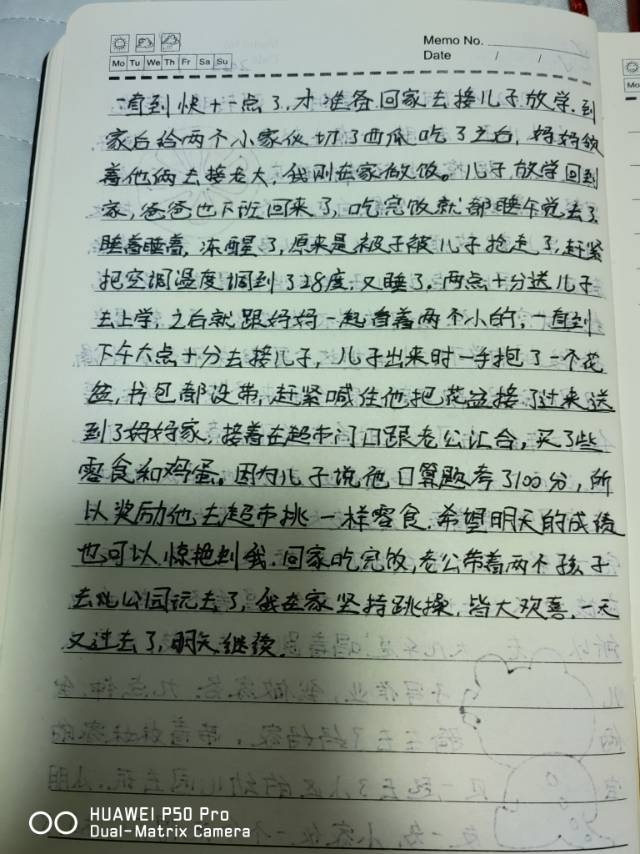 Memo No.
Mo Tu We Th Fr Sa Su
Date / /
一直到快十一点了,才准备回家去接儿子放学.到
家后给两个小家伙切了西瓜吃了之后,妈妈领
着他俩去接老大,我则在家做饭。儿子放学回到
家,爸爸也下班回来了,吃完饭就都睡午觉去了
睡着睡着,冻醒了,原来是被子被儿子抢走了,赶紧
把空调温度调到了28度,又睡了,两点十分送儿子
去上学,之后就跟妈妈一起看着两个小的,一直到
下午六点十分去接儿子,儿子出来时一手抱了一个花
盆,书包都没带,赶紧喊住他把花盆接了过来送
到了妈妈家,接着在超市门口跟老公汇合,买了些
零食和鸡蛋。因为儿子说他口算题考了100分,所
以奖励他去超市挑一样零食.希望明天的成绩
也可以惊艳到我.回家吃完饭,老公带着两个孩子
去公园玩去了,我在家坚持跳操,皆大欢喜.一天
又过去了,明天继续.
HUAWEI P50 Pro
Dual-Matrix Camera